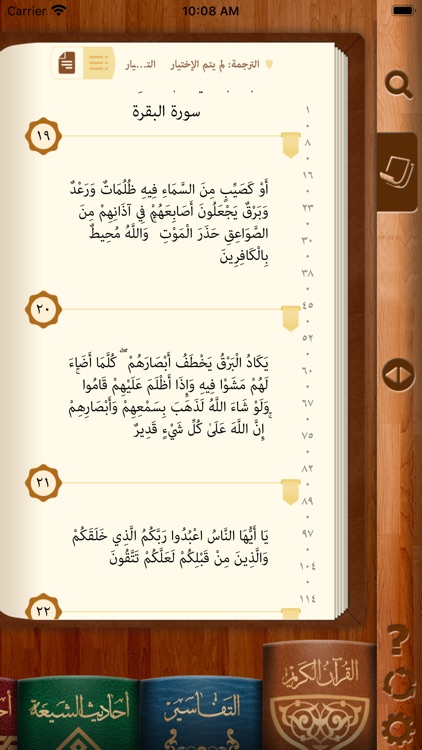 Carrier 10:08 AM
الترجمة: لم يتم الإختيار التـ...يار
سورة البقرة
١٩
أَوْ كَصَيِّبٍ مِنَ السَّمَاءِ فِيهِ ظُلُمَاتٌ وَرَعْدٌ
وَبَرْقٌ يَجْعَلُونَ أَصَابِعَهُمْ فِي آذَانِهِمْ مِنَ
الصَّوَاعِقِ حَذَرَ الْمَوْتِ ۚ وَاللَّهُ مُحِيطٌ
بِالْكَافِرِينَ
٢٠
يَكَادُ الْبَرْقُ يَخْطَفُ أَبْصَارَهُمْ ۖ كُلَّمَا أَضَاءَ
لَهُمْ مَشَوْا فِيهِ وَإِذَا أَظْلَمَ عَلَيْهِمْ قَامُوا ۚ
وَلَوْ شَاءَ اللَّهُ لَذَهَبَ بِسَمْعِهِمْ وَأَبْصَارِهِمْ
ۚ إِنَّ اللَّهَ عَلَىٰ كُلِّ شَيْءٍ قَدِيرٌ
٢١
يَا أَيُّهَا النَّاسُ اعْبُدُوا رَبَّكُمُ الَّذِي خَلَقَكُمْ
وَالَّذِينَ مِنْ قَبْلِكُمْ لَعَلَّكُمْ تَتَّقُونَ
٢٢
١
٨
١٦
٢٣
٣٠
٣٨
٤٥
٥٢
٦٠
٦٧
٧٥
٨٢
٨٩
٩٧
١٠٤
١١٤
القرآن الكريم
التفاسير
أحاديث الشيعة